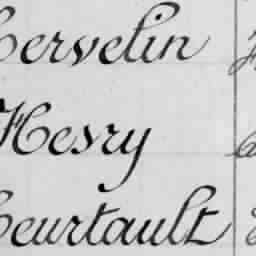 Hervelin
Hesry
Heurtault